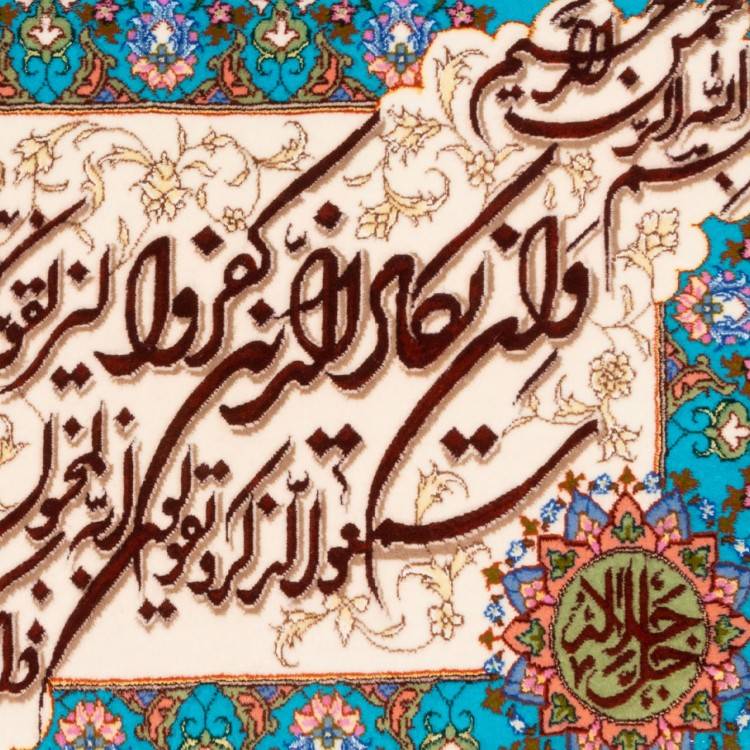 بسم الله الرحمن الرحیم
وان یکاد الذین کفروا لیزلقو
سمعوا الذکر و یقولون انه لمجنون
جل جلاله